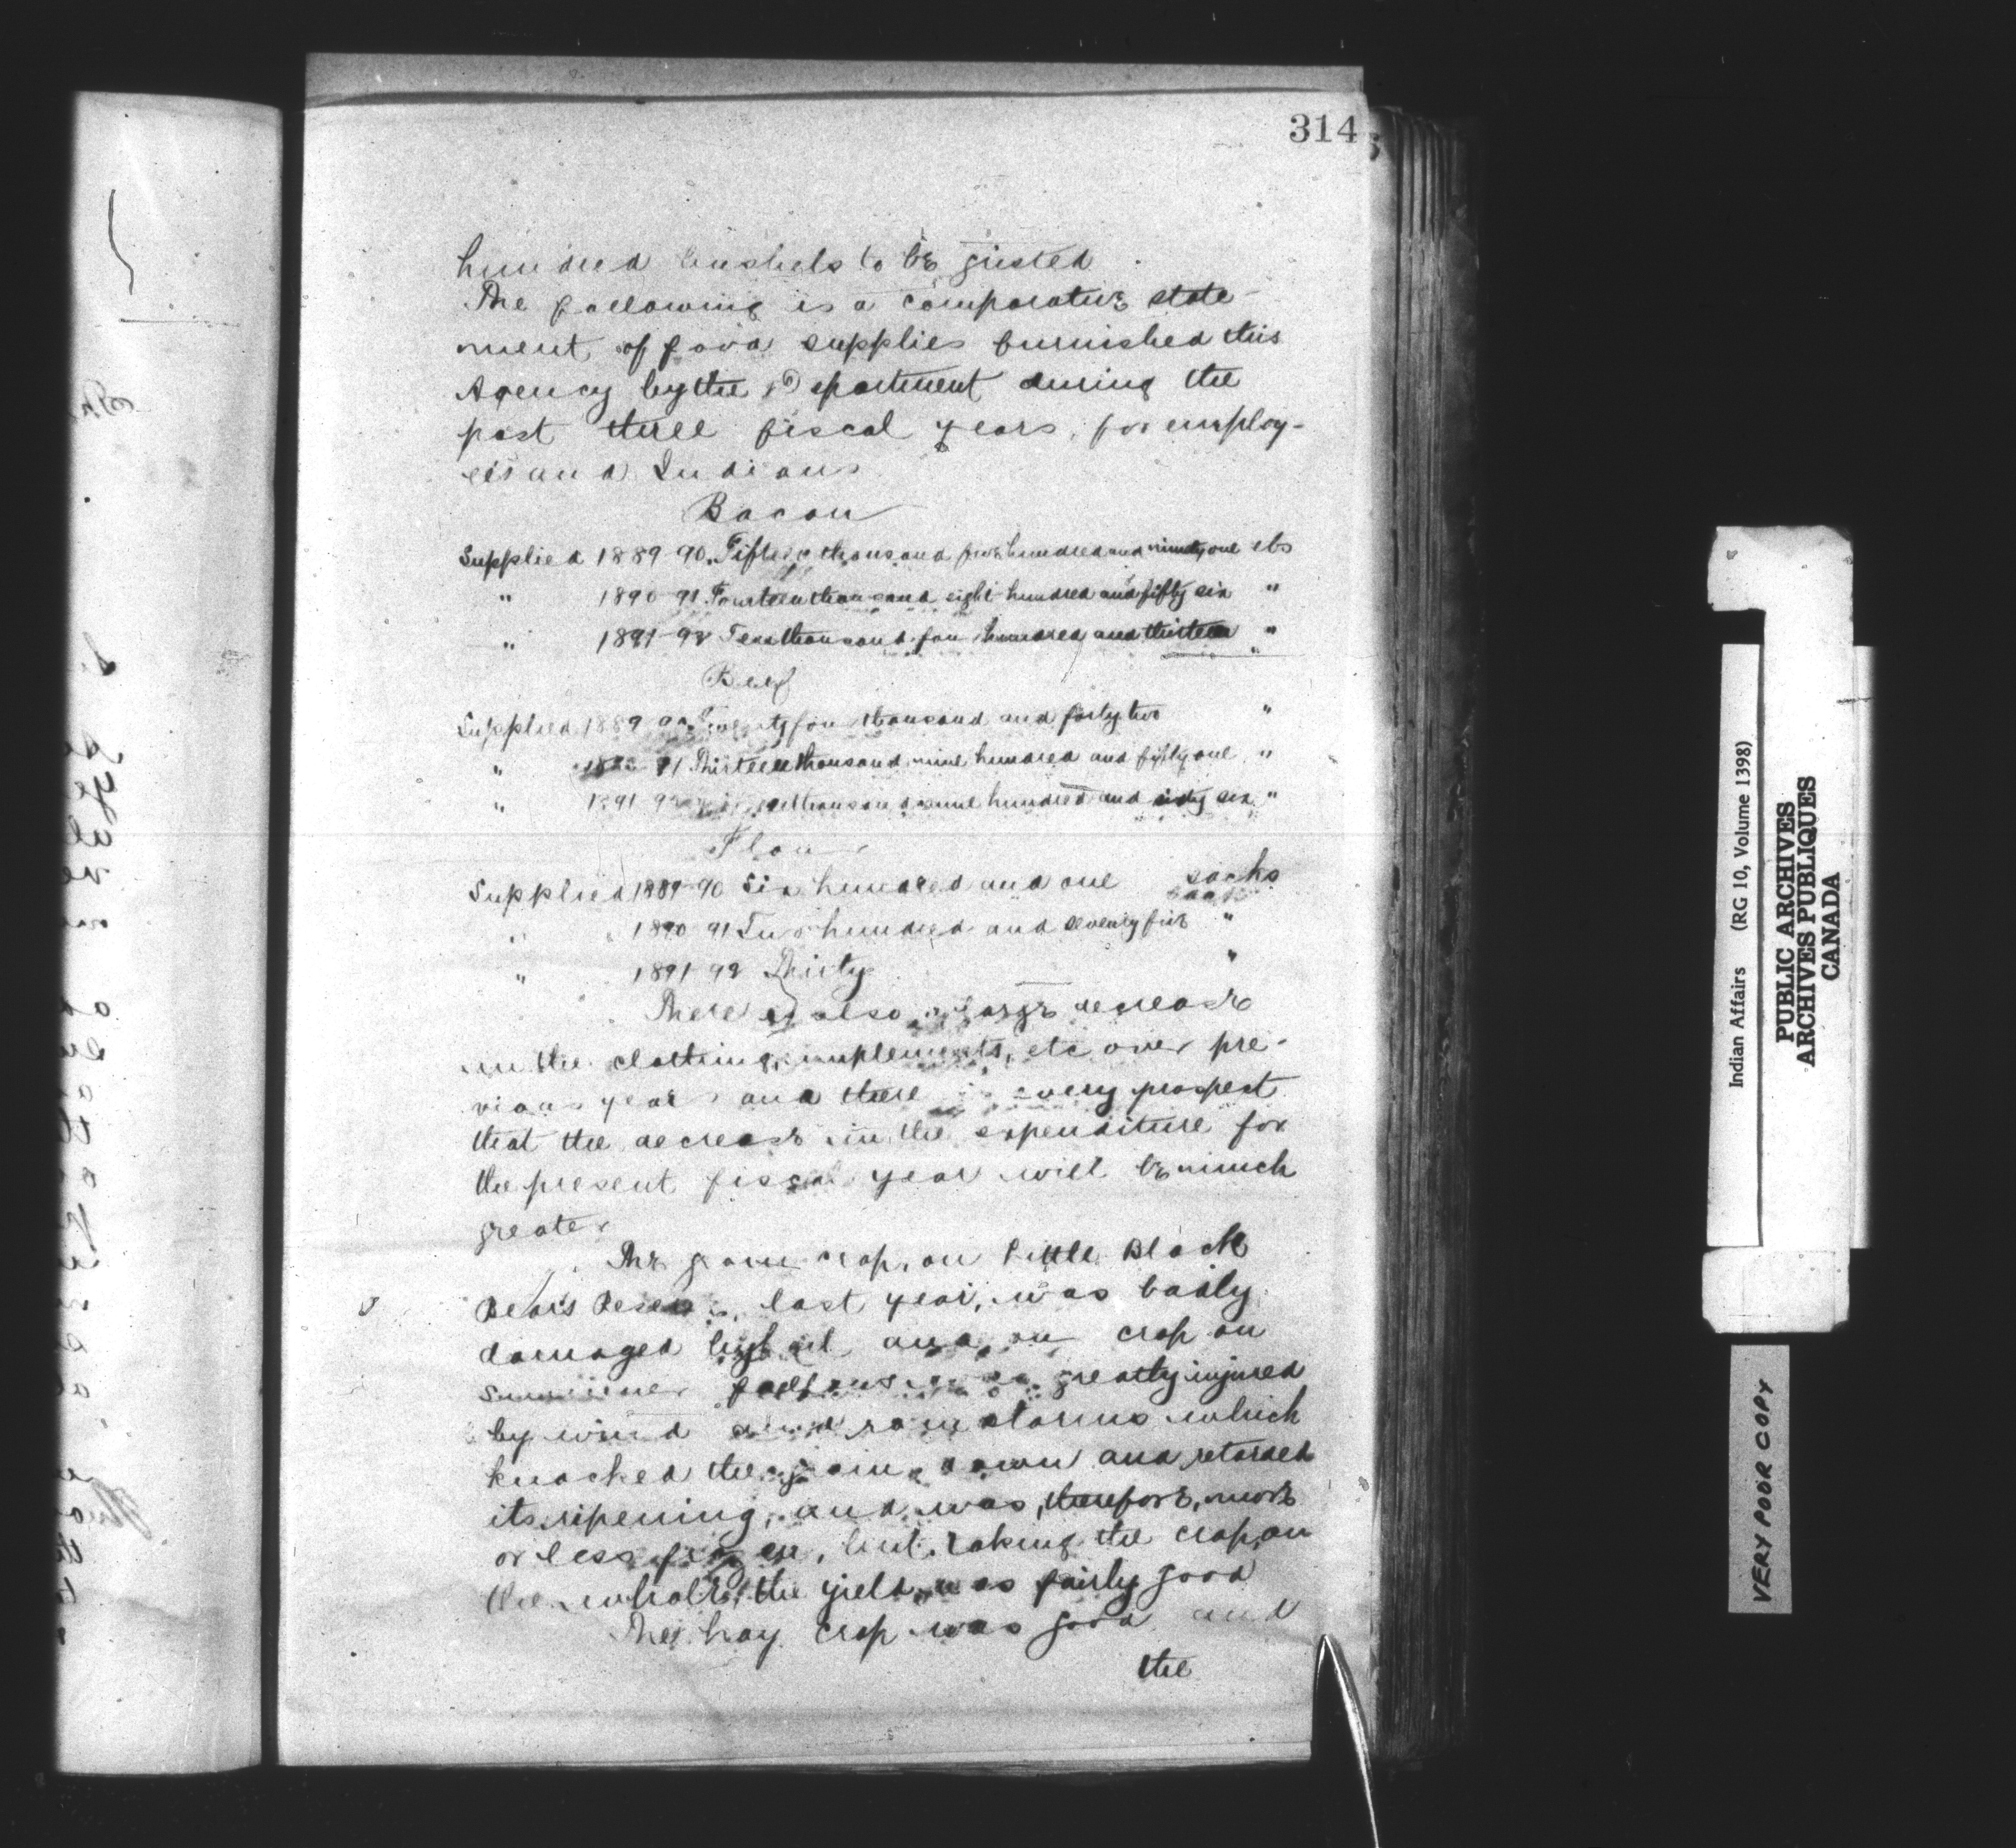 314
hundred bushels to be gristed
The following is a comparative state-
ment of food supplies furnished this
Agency by the Department during the
past three fiscal years, for employ-
ees and Indians
Bacon
Supplied 1889-90 Fifteen thousand four hundred and ninety one lbs
" 1890-91 Fourteen thousand eight hundred and fifty six "
" 1891-92 Ten thousand four hundred and thirteen "
Beef
Supplied 1889 90 Twenty four thousand and forty two "
" 1890-91 Thirteen thousand nine hundred and fifty one "
" 1891 92 thousand nine hundred and sixty six "
Flour
Supplied 1889-90 Six hundred and one sacks
" 1890 91 Two hundred and seventy five "
" 1891 92 Thirty "
There is also a large decrease
in the clothing, implements, etc over pre-
vious years and there is every prospect
that the decrease in the expenditure for
the present fiscal year will be much
greater
The grain crop, on Little Black
Bears Reserve, last year, was badly
damaged by hail and our crop on
summer fallows was greatly injured
by wind and rain storms which
knocked the grain down and retarded
its ripening, and was, therefore, more
or less frozen, but, taking the crop, on
the whole, the yield was fairly good
The hay crop was good and
the
Indian Affairs (RG 10, Volume 1398)
PUBLIC ARCHIVES
ARCHIVES PUBLIQUES
CANADA
VERY POOR COPY